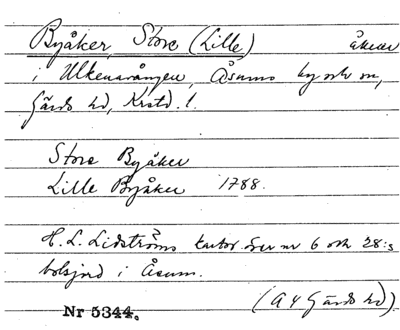 Byåker, Store (Lille) åkrar
i Ulkenavången, Åsums by och sn,
Gärds hd, Krstd. l.
Store Byåker
Lille Byåker 1788.
H. L. Lidströms kartor över nr 6 och 28:s
bolsjord i Åsum.
(A 4 Gärds hd).
Nr 5344.